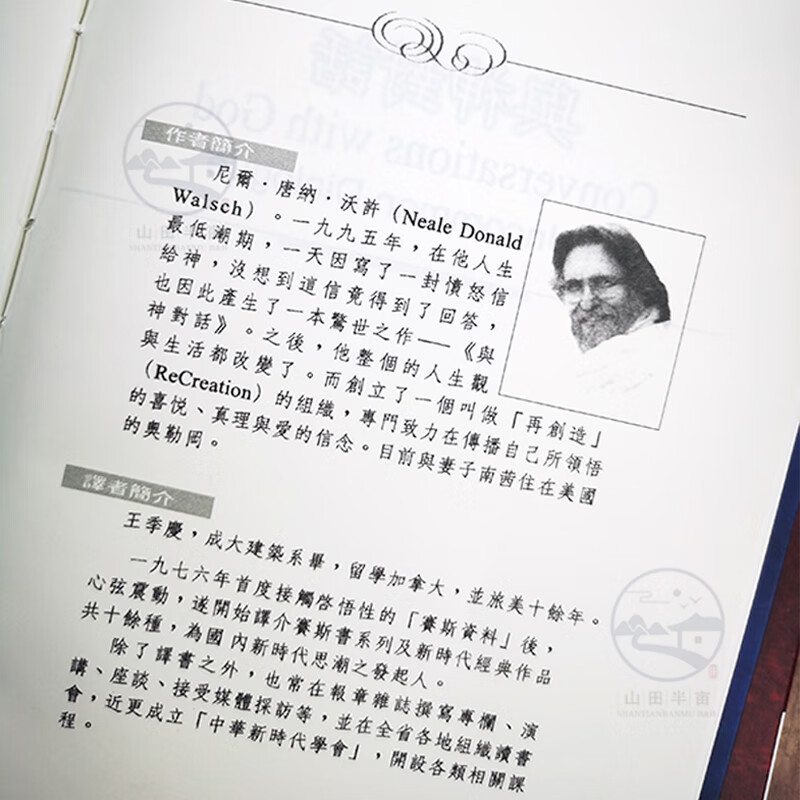 作者簡介
尼爾．唐納．沃許（Neale Donald
Walsch）。一九九五年，在他人生
最低潮期，一天因寫了一封憤怒信
給神，沒想到這信竟得到了回答，
也因此產生了一本驚世之作——《與
神對話》。之後，他整個的人生觀
與生活都改變了。而創立了一個叫做「再創造」
（ReCreation）的組織，專門致力在傳播自己所領悟
的喜悅、真理與愛的信念。目前與妻子南茜住在美國
的奧勒岡。
譯者簡介
王季慶，成大建築系畢，留學加拿大，並旅美十餘年。
一九七六年首度接觸啓悟性的「賽斯資料」後，
心弦震動，遂開始譯介賽斯書系列及新時代經典作品
共十餘種，為國內新時代思潮之發起人。
除了譯書之外，也常在報章雜誌撰寫專欄、演
講、座談、接受媒體採訪等，並在全省各地組織讀書
會，近更成立「中華新時代學會」，開設各類相關課
程。
山田半亩
SHANTIANBANMU B&B
山田半亩
SHANTIANBANMU B&B
與神對話
Conversations with God